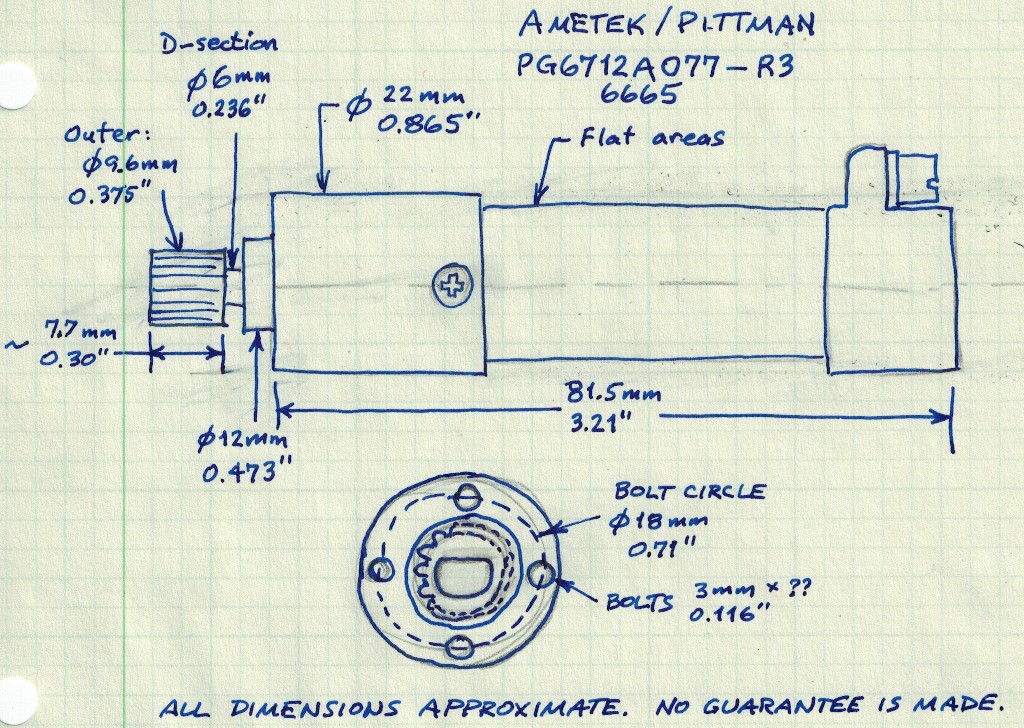 AMETEK/PITTMAN
PG6712A077-R3
6665
D-section
φ6mm
0.236"
φ 22mm
0.865"
Flat areas
Outer:
φ9.6mm
0.375"
~ 7.7mm
0.30"
81.5mm
3.21"
φ12mm
0.473"
BOLT CIRCLE
φ18mm
0.71"
BOLTS 3mm × ??
0.116"
ALL DIMENSIONS APPROXIMATE. NO GUARANTEE IS MADE.